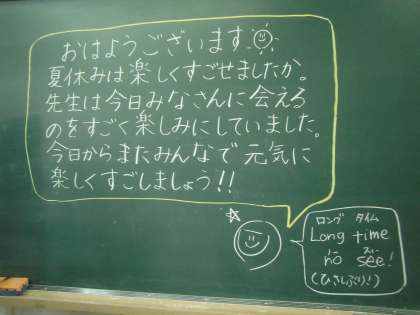 おはようございます
夏休みは楽しくすごせましたか。
先生は今日みなさんに会える
のをすごく楽しみにしていました。
今日からまたみんなで元気に
楽しくすごしましょう!!
ロング タイム
Long time
ノー スィー
no see!
(ひさしぶり!)